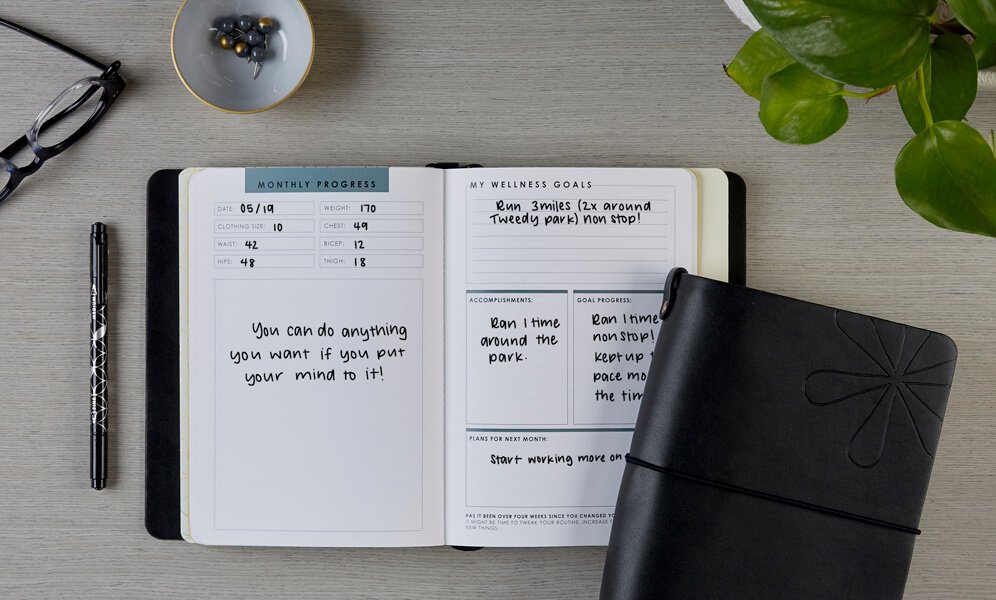 MONTHLY PROGRESS
DATE: 05/19 WEIGHT: 170
CLOTHING SIZE: 10 CHEST: 49
WAIST: 42 BICEP: 12
HIPS: 48 THIGH: 18
You can do anything
you want if you put
your mind to it!
MY WELLNESS GOALS
Run 3miles (2x around
Tweedy park) non stop!
ACCOMPLISHMENTS:
Ran 1 time
around the
park.
GOAL PROGRESS:
Ran 1 time
nonstop!
kept up
pace
the
PLANS FOR NEXT MONTH:
Start working more on
HAS IT BEEN OVER FOUR WEEKS SINCE YOU CHANGED
IT MIGHT BE TIME TO TWEAK YOUR ROUTINE, INCREASE
NEW THINGS.